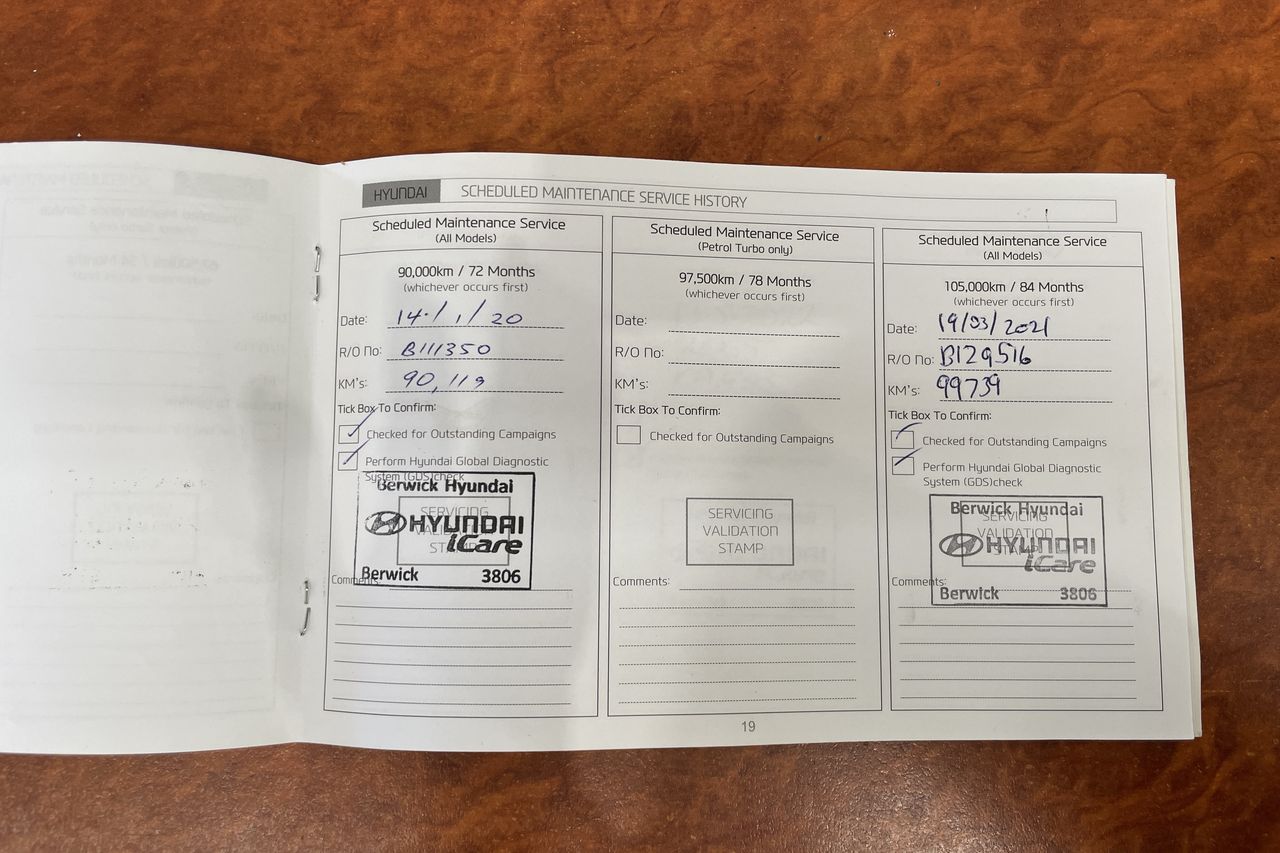 HYUNDAI SCHEDULED MAINTENANCE SERVICE HISTORY
Scheduled Maintenance Service
(All Models)
90,000km / 72 Months
(whichever occurs first)
Date: 14./1/20
R/O No: B111350
KM's: 90,119
Tick Box To Confirm:
Checked for Outstanding Campaigns
Perform Hyundai Global Diagnostic
System (GDS)check
Berwick Hyundai
SERVICING
VALIDATION
STAMP
HYUNDAI
iCare
Berwick 3806
Comments:
Scheduled Maintenance Service
(Petrol Turbo only)
97,500km / 78 Months
(whichever occurs first)
Date:
R/O No:
KM's:
Tick Box To Confirm:
Checked for Outstanding Campaigns
SERVICING
VALIDATION
STAMP
Comments:
Scheduled Maintenance Service
(All Models)
105,000km / 84 Months
(whichever occurs first)
Date: 19/03/2021
R/O No: B129516
KM's: 99739
Tick Box To Confirm:
Checked for Outstanding Campaigns
Perform Hyundai Global Diagnostic
System (GDS)check
Berwick Hyundai
SERVICING
VALIDATION
STAMP
HYUNDAI
iCare
Berwick 3806
Comments:
19